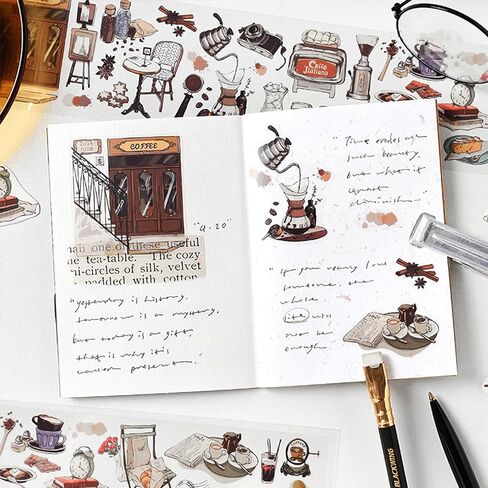 Caffè
Italiano
COFFEE
"4.20"
nan one of these useful
he tea-table. The cozy
ni-circles of silk, velvet
padded with cotton
"yesterday is history,
tomorrow is a mystery,
but today is a gift,
that is why it's
called present."
"Time erodes all
such beauty,
but what it
cannot
diminish...
"If you really love
someone, the
whole
life will
not be
enough."
COFFEE
BLACKWING